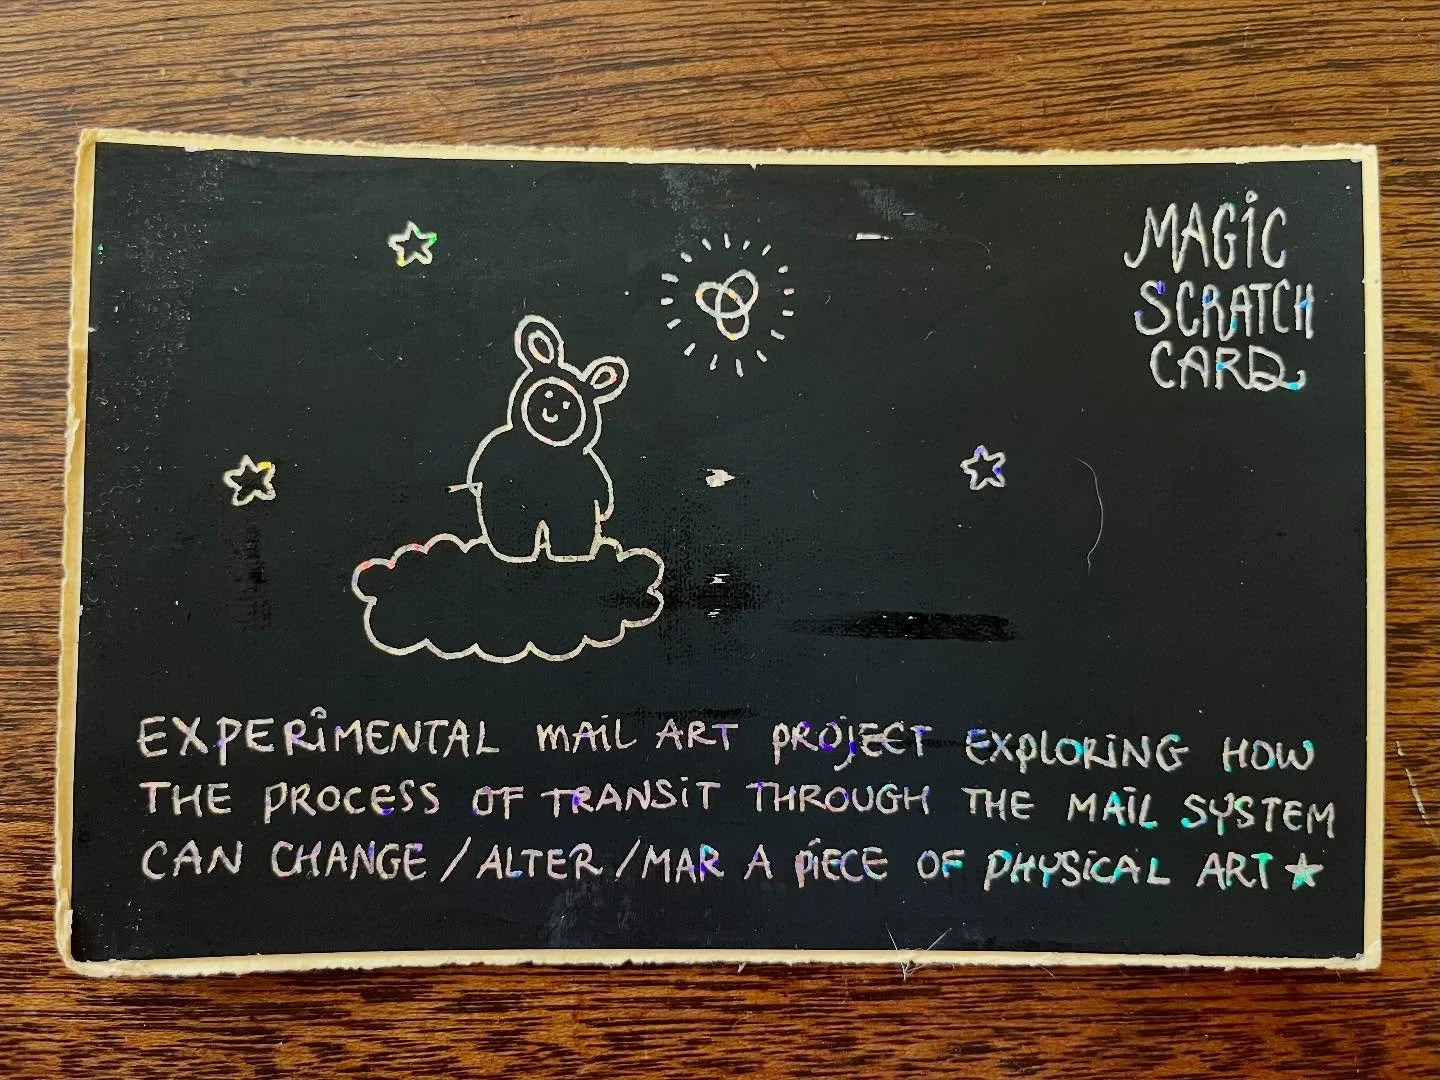 MAGiC
SCRATCH
CARD
EXPERiMENTAL MAiL ART PROjECT EXPLORiNG HOW
THE PROCESS OF TRANSiT THROUGH THE MAiL SYSTEM
CAN CHANGE / ALTER / MAR A PiECE OF PHYSiCAL ART ★